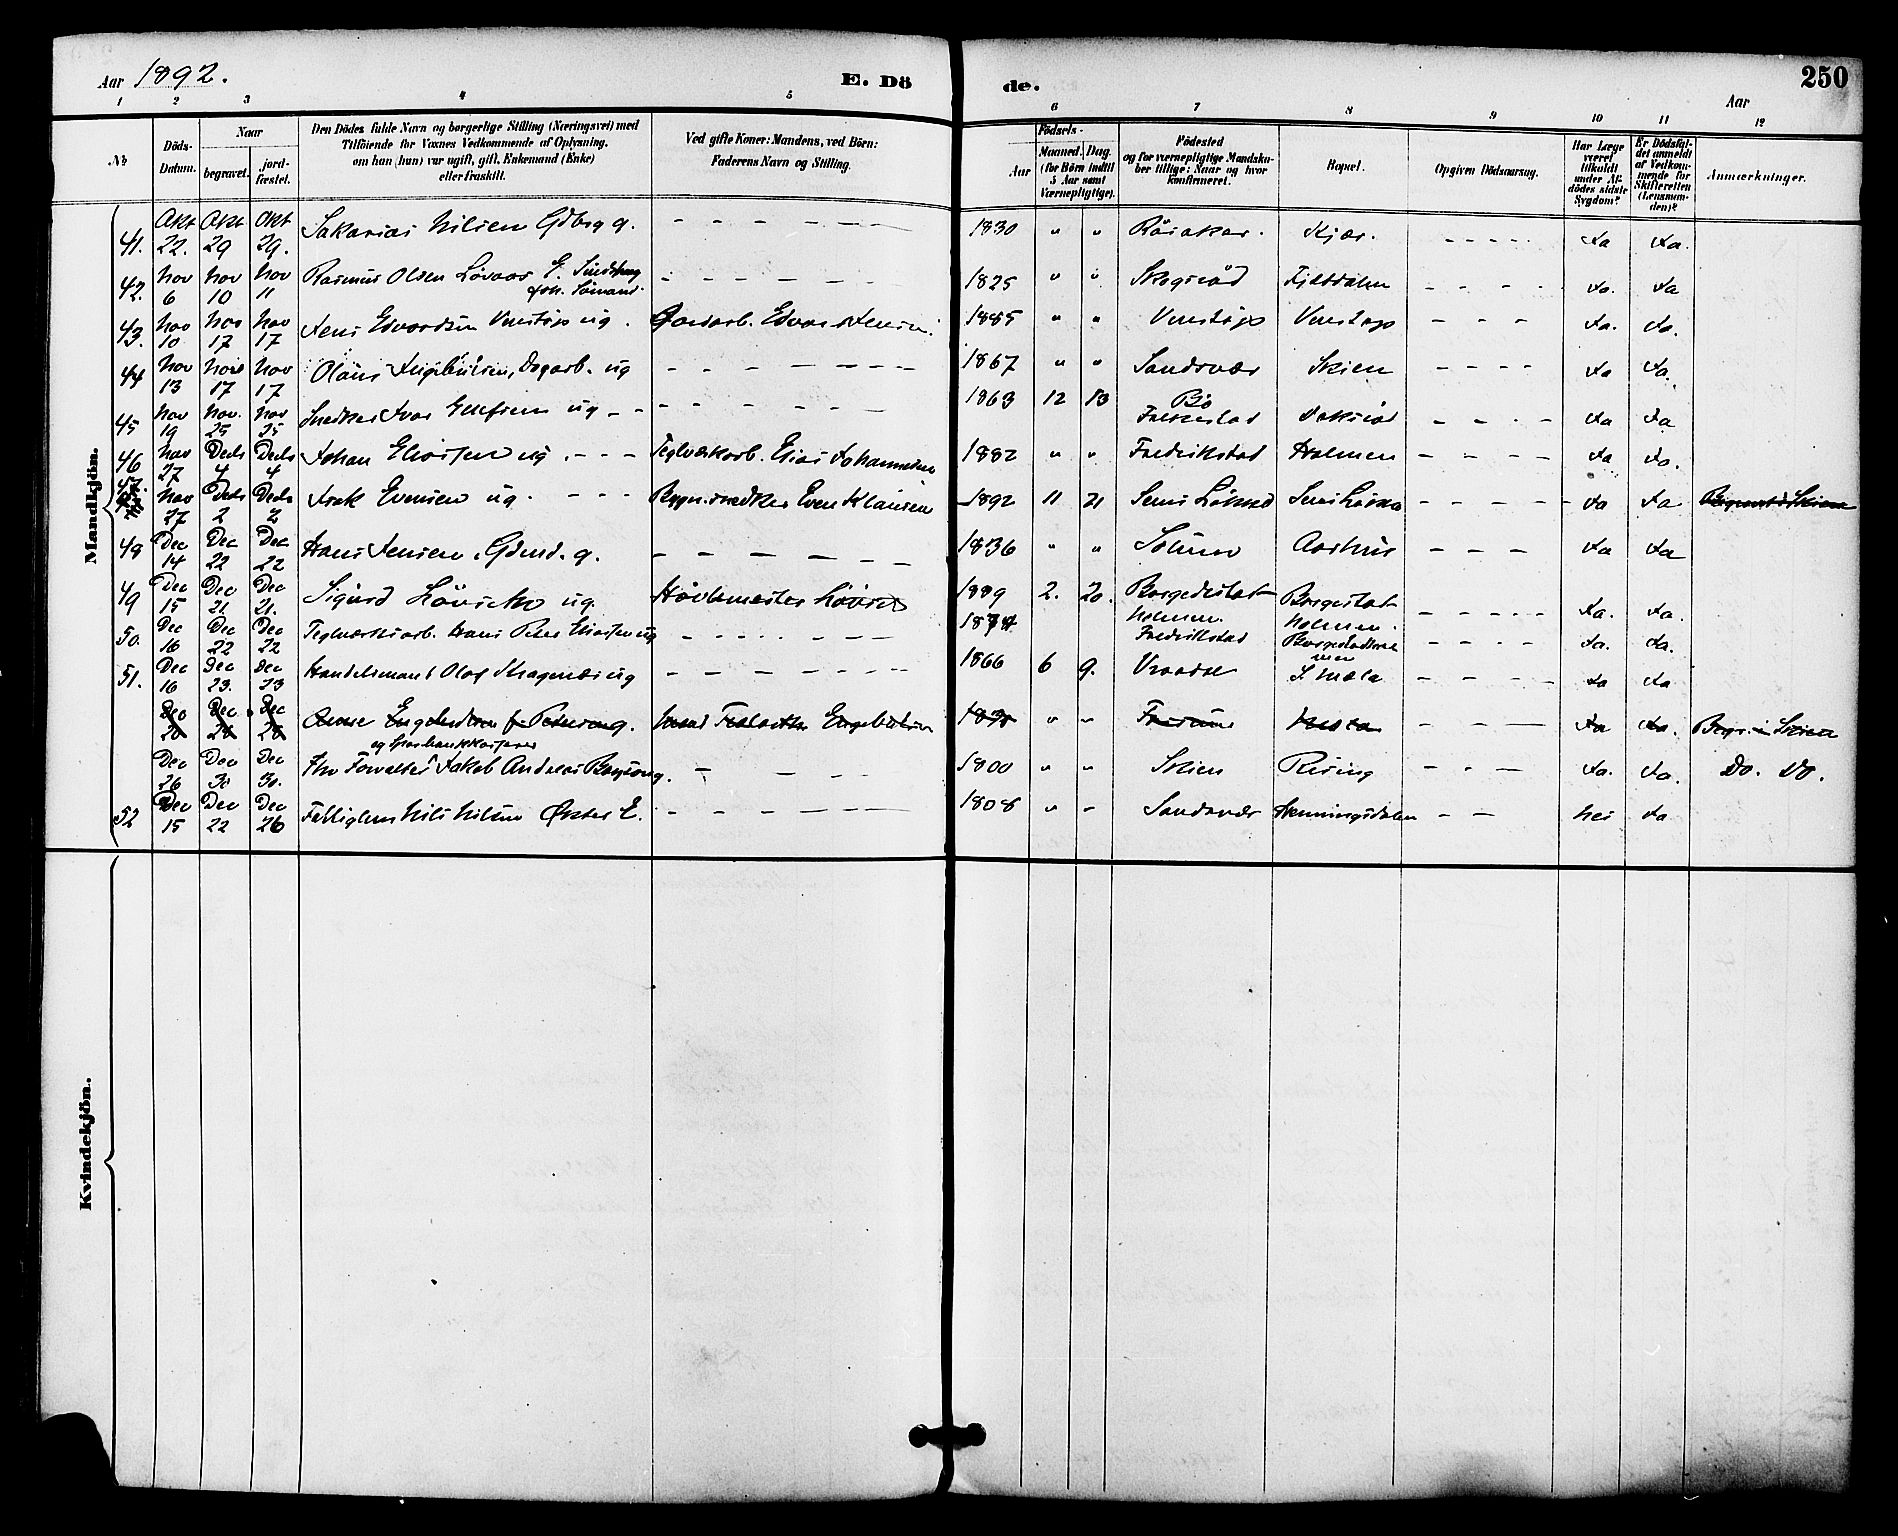 Aar 1892.
E. Dö
de.
250
Aar
1 2 3 4 5 6 7 8 9 10 11 12
No
Döds-Datum.
Naar
begravet.
jord-fæstet.
Den Dödes fulde Navn og borgerlige Stilling (Næringsvei) med
Tilföiende for Voxnes Vedkommende af Oplysning,
om han (hun) var ugift, gift, Enkemand (Enke)
eller fraskilt.
Ved gifte Koner: Mandens, ved Börn:
Faderens Navn og Stilling.
Födsels-
Aar
Maaned.
Dag.
(for Börn indtil
5 Aar samt
Værnepligtige).
Födested
og for værnepligtige Mandsku-
ber tillige: Naar og hvor
konfirmeret.
Bopæl.
Opgiven Dödsaarsag.
Har Læge
været
tilkaldt
under Af-
dödes sidste
Sygdom?
Er Dödsfal-
det anmeldt
af Vedkom-
mende for
Skifteretten
(Lensman-
den)?
Anmærkninger.
Mandkjön.
41. Okt 22. Okt 29 Okt 29. Sakarias Nilsen Gdbrg g. - - - - - 1830 " " Räsaker. Kjær. - - - - Ja Ja.
42. Nov 6 Nov 10 Nov 11 Rasmus Olsen Lövaas E. - - - - - 1825 " " Skogsrød - - - - Ja. Ja
43. Nov 10 Nov 17 Nov 17 Jens Edvardsen Venstøp ug. Gaardarb. Edvard Jensen. 1885 " " Venstøp Venstøp - - - Ja. Ja.
44 Nov 13 Nov 17 Nov 17 Olaus Ingebretsen, Dagarb. ug - - - - - 1867 " " Sandsvær Skien - - - - Ja Ja.
45 Nov 19 Nov. 25 Nov 25 Snedker Ivar Ellefsen ug - - - - - 1863 12 13 Bö - - - - Ja Ja
46 Nov 27 Decb 4 Decb 4 Johan Eliassen ug. - - - Teglværksarb. Elias Johannesen 1882 " " Fredrikstad Holmen - - - - Ja Ja.
47. Nov 27 Decb 2 Decb 2 Isak Evensen ug. - - - Bygn.snedker Even Klausen 1892 11 21 - - - - Ja Ja Begravet i Skien
48 Dec 14 Dec 22 Dec 22 Hans Jensen, Gdmd. g. - - - - - 1836 " " Solum Aarhus - - - Ja Ja
49 Dec 15 Dec 21. Dec 21. Sigurd ug. Høvlemester 1889 2. 20. Borgestad Holmen. Borgestad Holmen. - - - - Ja. Ja.
50. Dec 16 Dec 22 Dec 22 Teglværksarb. Hans Peter Eliassen ug - - - - - Fredrikstad - - - - Ja. Ja.
51. Dec 16 Dec 23. Dec 23 Handelsmand Olaf Kragenæs ug - - - - - 1866 6 9. Vraadal S. Mæla - - - - Ja Ja
Dec 20 Dec 28 Dec 28 Anne Engebretsen f. Petersen g. Mand 18 " " - - - Ja Ja. Begr. i Skien
og Sparebankkasserer
Dec 26 Dec 30 Dec 30. Fhv Forvalter Jakob Andreas g. - - - 1800 " " Skien Rising - - - Ja. Ja. Do. Do.
52 Dec 15 Dec 22 Dec 26 Fattiglem Nils Nilsen E. - - - - - 1808 " - Sandsvær Henningsdalen - - Nei Ja
Kvindekjön.